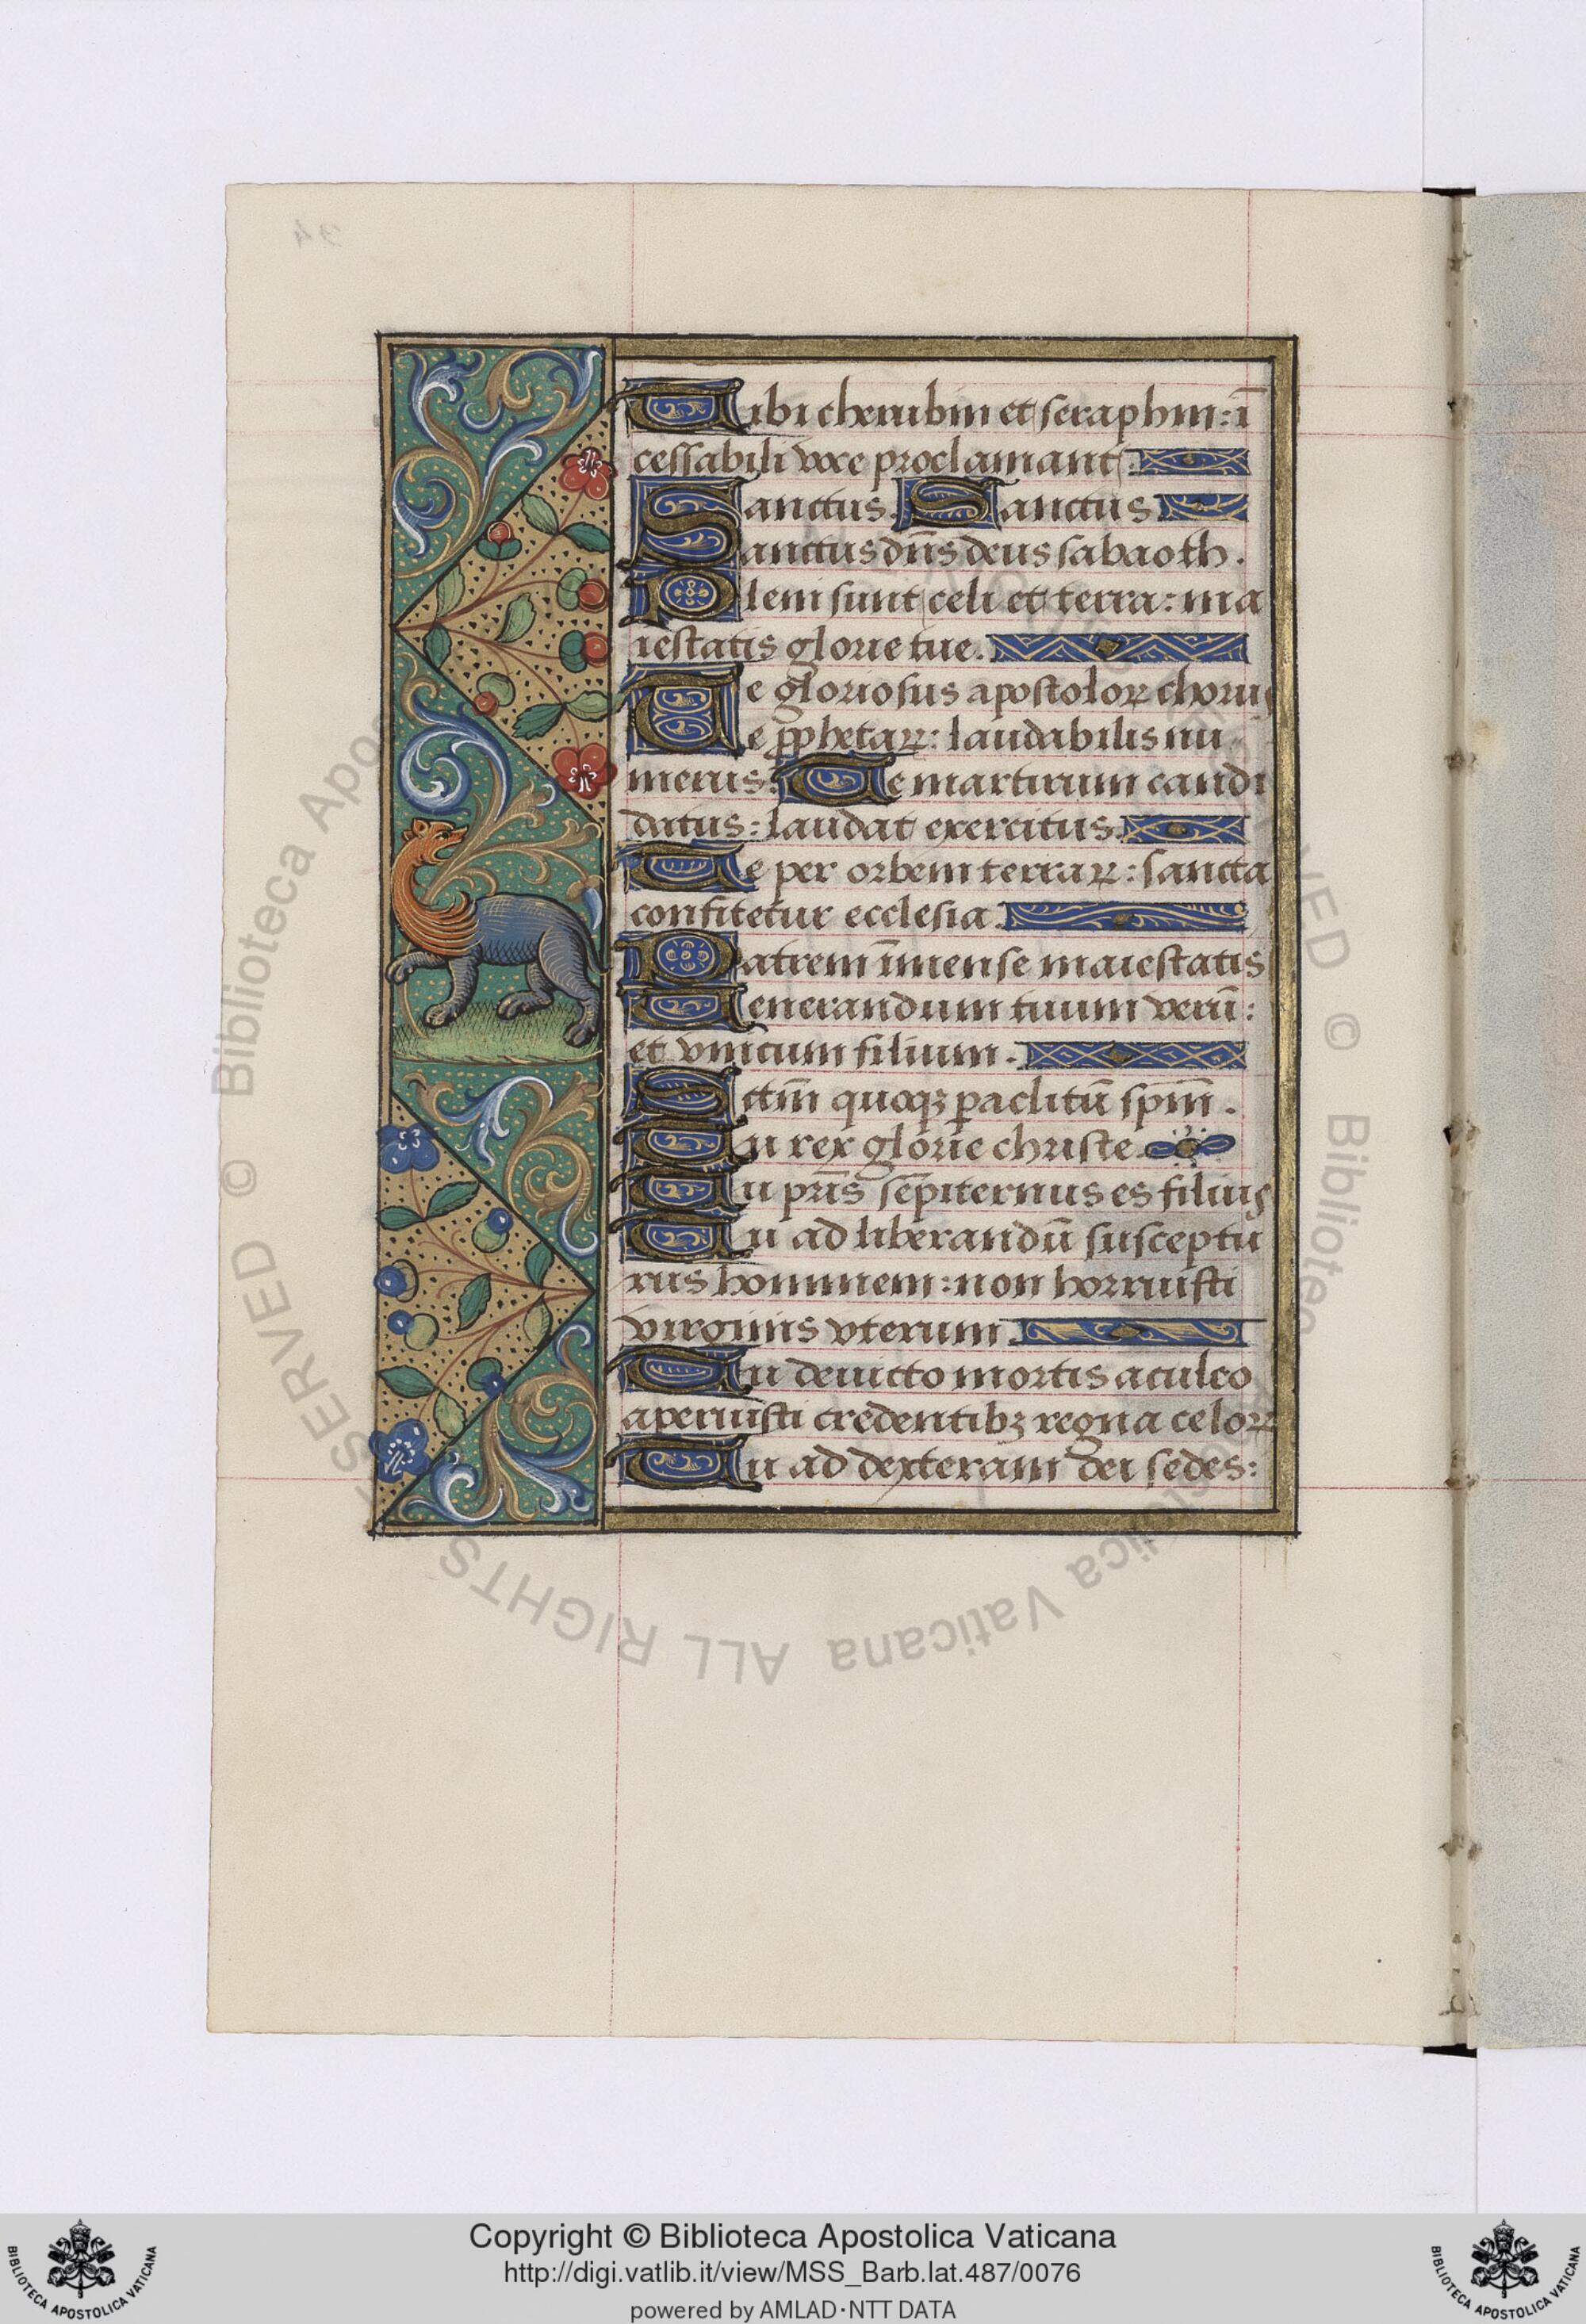 Tibi cherubin et seraphin: ī
cessabili voce proclamant.
Sanctus. Sanctus
Sanctus dñs deus sabaoth.
Pleni sunt celi et terra: ma
iestatis glorie tue.
Te gloriosus apostoloꝝ chorus
Te ꝓphetaꝝ: laudabilis nu
merus. Te martirum candi
datus: laudat exercitus.
Te per orbem terraꝝ: sancta
confitetur ecclesia.
Patrem īmense maiestatis
Venerandum tuum verū:
et vnicum filium.
Sctm̄ quoqꝫ ꝑaclitū spm̄.
Tu rex glorie christe
Tu pr̄is sēpiternus es filius
Tu ad liberandū susceptu
rus hominem: non horruisti
virginis vterum.
Tu deuicto mortis aculeo
aperuisti credentibꝫ regna celoꝝ
Tu ad dexteram dei sedes:
34
© Biblioteca Apostolica Vaticana ALL RIGHTS RESERVED
Copyright © Biblioteca Apostolica Vaticana
http://digi.vatlib.it/view/MSS_Barb.lat.487/0076
powered by AMLAD·NTT DATA
BIBLIOTECA APOSTOLICA VATICANA
BIBLIOTECA APOSTOLICA VATICANA